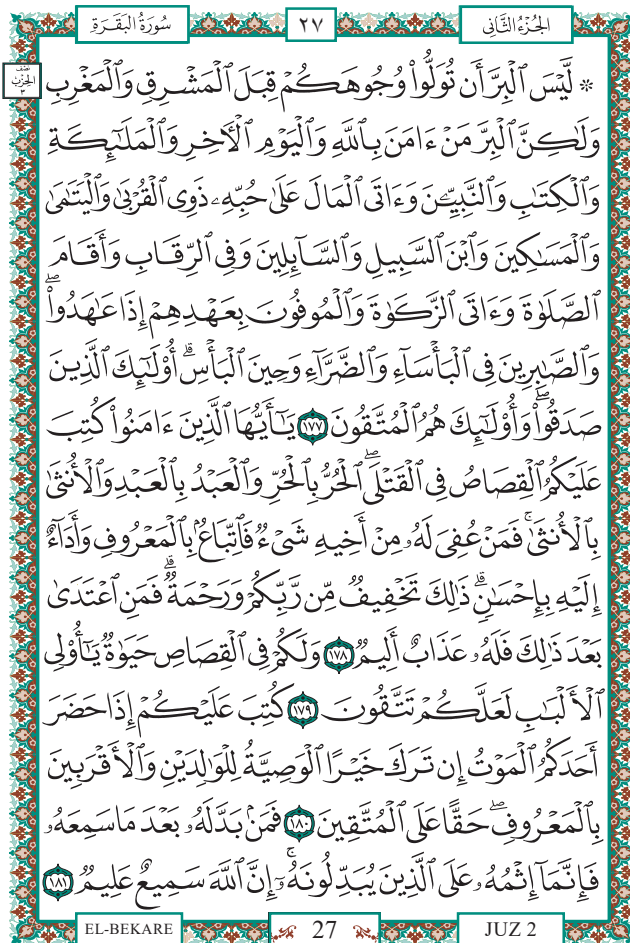 سُورَةُ البَقَرَةِ ٢٧ الجُزْءُ الثَّانِي
نصف
الحزب
٣
۞ لَّيْسَ ٱلْبِرَّ أَن تُوَلُّوا۟ وُجُوهَكُمْ قِبَلَ ٱلْمَشْرِقِ وَٱلْمَغْرِبِ
وَلَـٰكِنَّ ٱلْبِرَّ مَنْ ءَامَنَ بِٱللَّهِ وَٱلْيَوْمِ ٱلْـَٔاخِرِ وَٱلْمَلَـٰٓئِكَةِ
وَٱلْكِتَـٰبِ وَٱلنَّبِيِّـۧنَ وَءَاتَى ٱلْمَالَ عَلَىٰ حُبِّهِۦ ذَوِى ٱلْقُرْبَىٰ وَٱلْيَتَـٰمَىٰ
وَٱلْمَسَـٰكِينَ وَٱبْنَ ٱلسَّبِيلِ وَٱلسَّآئِلِينَ وَفِى ٱلرِّقَابِ وَأَقَامَ
ٱلصَّلَوٰةَ وَءَاتَى ٱلزَّكَوٰةَ وَٱلْمُوفُونَ بِعَهْدِهِمْ إِذَا عَـٰهَدُوا۟ۖ
وَٱلصَّـٰبِرِينَ فِى ٱلْبَأْسَآءِ وَٱلضَّرَّآءِ وَحِينَ ٱلْبَأْسِۗ أُو۟لَـٰٓئِكَ ٱلَّذِينَ
صَدَقُوا۟ۖ وَأُو۟لَـٰٓئِكَ هُمُ ٱلْمُتَّقُونَ ١٧٧ يَـٰٓأَيُّهَا ٱلَّذِينَ ءَامَنُوا۟ كُتِبَ
عَلَيْكُمُ ٱلْقِصَاصُ فِى ٱلْقَتْلَىۖ ٱلْحُرُّ بِٱلْحُرِّ وَٱلْعَبْدُ بِٱلْعَبْدِ وَٱلْأُنثَىٰ
بِٱلْأُنثَىٰۚ فَمَنْ عُفِىَ لَهُۥ مِنْ أَخِيهِ شَىْءٌ فَٱتِّبَاعٌۢ بِٱلْمَعْرُوفِ وَأَدَآءٌ
إِلَيْهِ بِإِحْسَـٰنٍۗ ذَٰلِكَ تَخْفِيفٌ مِّن رَّبِّكُمْ وَرَحْمَةٌۗ فَمَنِ ٱعْتَدَىٰ
بَعْدَ ذَٰلِكَ فَلَهُۥ عَذَابٌ أَلِيمٌ ١٧٨ وَلَكُمْ فِى ٱلْقِصَاصِ حَيَوٰةٌ يَـٰٓأُو۟لِى
ٱلْأَلْبَـٰبِ لَعَلَّكُمْ تَتَّقُونَ ١٧٩ كُتِبَ عَلَيْكُمْ إِذَا حَضَرَ
أَحَدَكُمُ ٱلْمَوْتُ إِن تَرَكَ خَيْرًا ٱلْوَصِيَّةُ لِلْوَٰلِدَيْنِ وَٱلْأَقْرَبِينَ
بِٱلْمَعْرُوفِۖ حَقًّا عَلَى ٱلْمُتَّقِينَ ١٨٠ فَمَنۢ بَدَّلَهُۥ بَعْدَ مَا سَمِعَهُۥ
فَإِنَّمَآ إِثْمُهُۥ عَلَى ٱلَّذِينَ يُبَدِّلُونَهُۥٓۚ إِنَّ ٱللَّهَ سَمِيعٌ عَلِيمٌ ١٨١
EL-BEKARE 27 JUZ 2